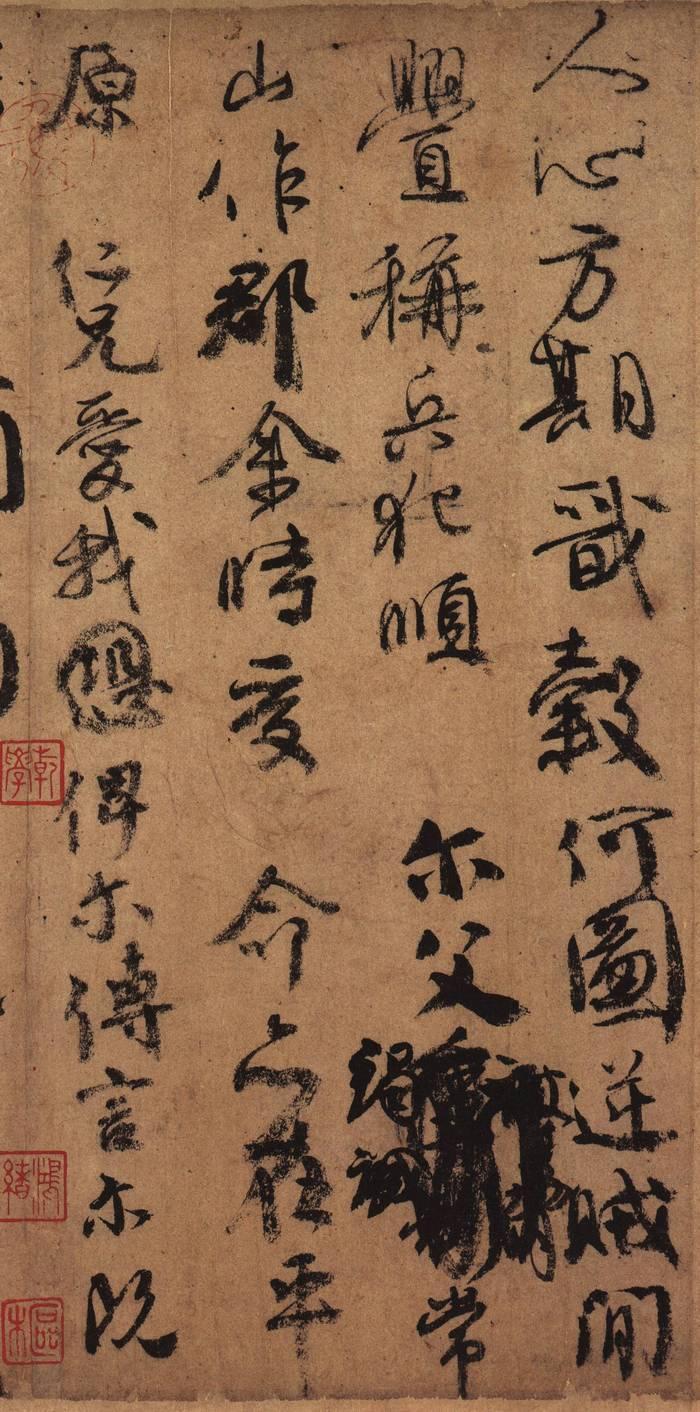 人心方期戩穀何圖逆賊間
釁稱兵犯順 尒父竭誠常
山作郡余時受 命亦在平
原 仁兄愛我恐俾尒傳言尒既